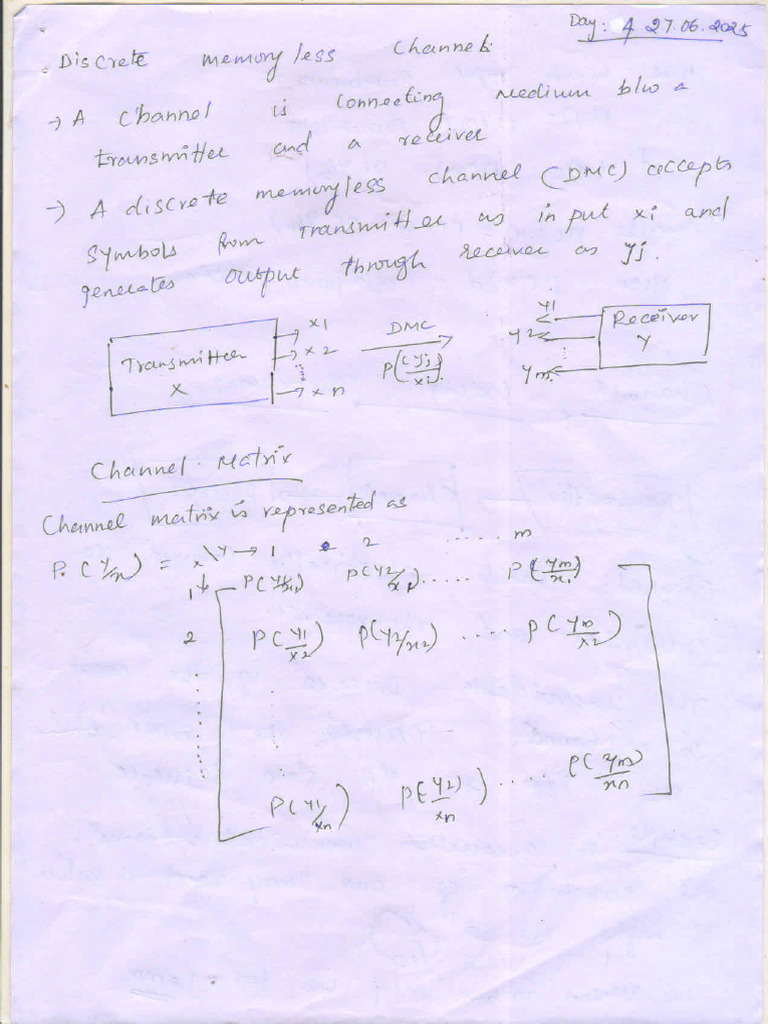 Day: 4 27.06.2025
Discrete memoryless Channel:
→ A Channel is connecting medium b/w a
transmitter and a receiver
→ A discrete memoryless channel (DMC) accepts
symbols from transmitter as input xi and
generates output through receiver as yj.
Transmitter X
x1
x2
xn
DMC
P((yj)/xi)
y1
y2
ym
Receiver Y
Channel Matrix
Channel matrix is represented as
P(Y/x) = x\y → 1 2 ...... m
1↓ P(y1/x1) P(y2/x1)...... P(ym/x1)
2 P(y1/x2) P(y2/x2) .... P(ym/x2)
P(y1/xn) P(y2/xn) ..... P(ym/xn)